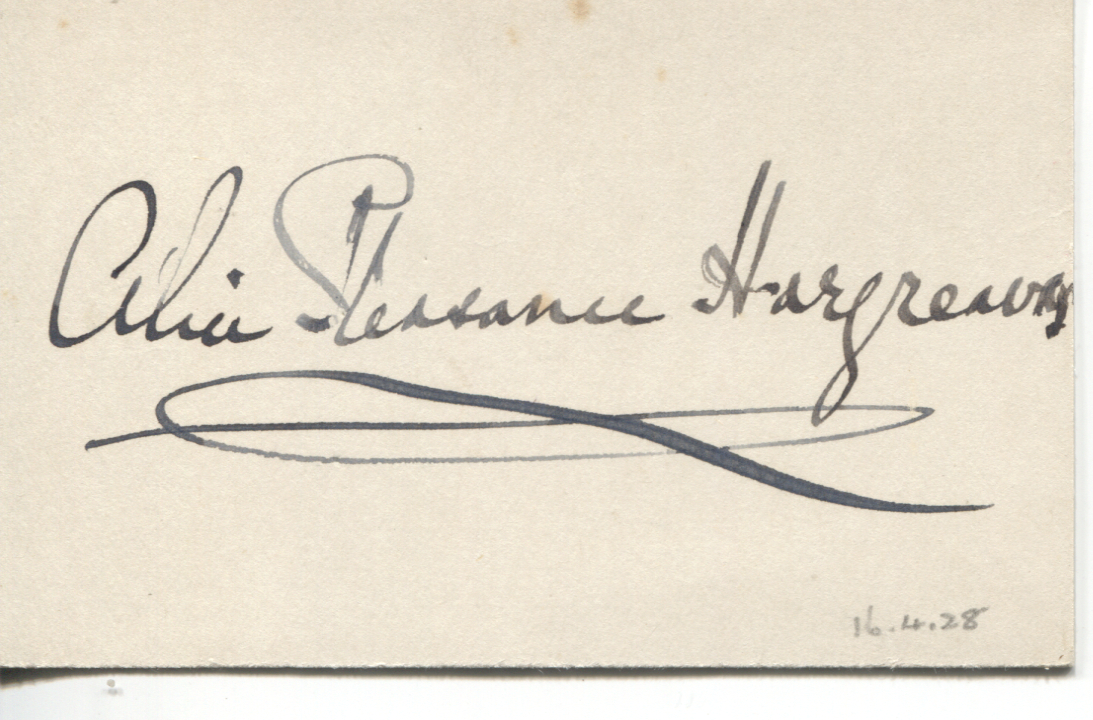 Alice Pleasance Hargreaves
16.4.28